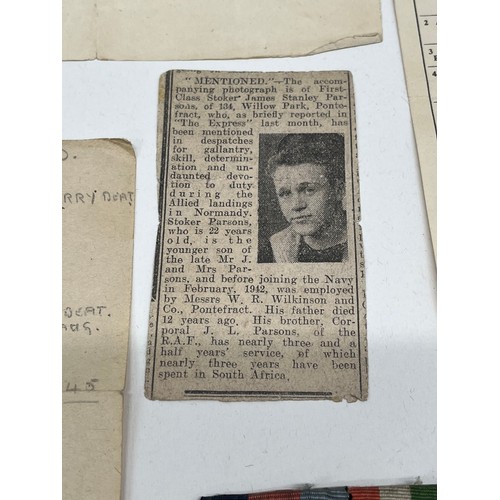 "MENTIONED."—The accom-
panying photograph is of First-
Class Stoker James Stanley Par-
sons, of 134, Willow Park, Ponte-
fract, who, as briefly reported in
"The Express" last month, has
been mentioned
in despatches
for gallantry,
skill, determin-
ation and un-
daunted devo-
tion to duty
during the
Allied landings
in Normandy.
Stoker Parsons,
who is 22 years
old, is the
younger son of
the late Mr J.
and Mrs Par-
sons, and before joining the Navy
in February, 1942, was employed
by Messrs W. R. Wilkinson and
Co., Pontefract. His father died
12 years ago. His brother, Cor-
poral J. L. Parsons, of the
R.A.F., has nearly three and a
half years' service, of which
nearly three years have been
spent in South Africa.
45
2
3